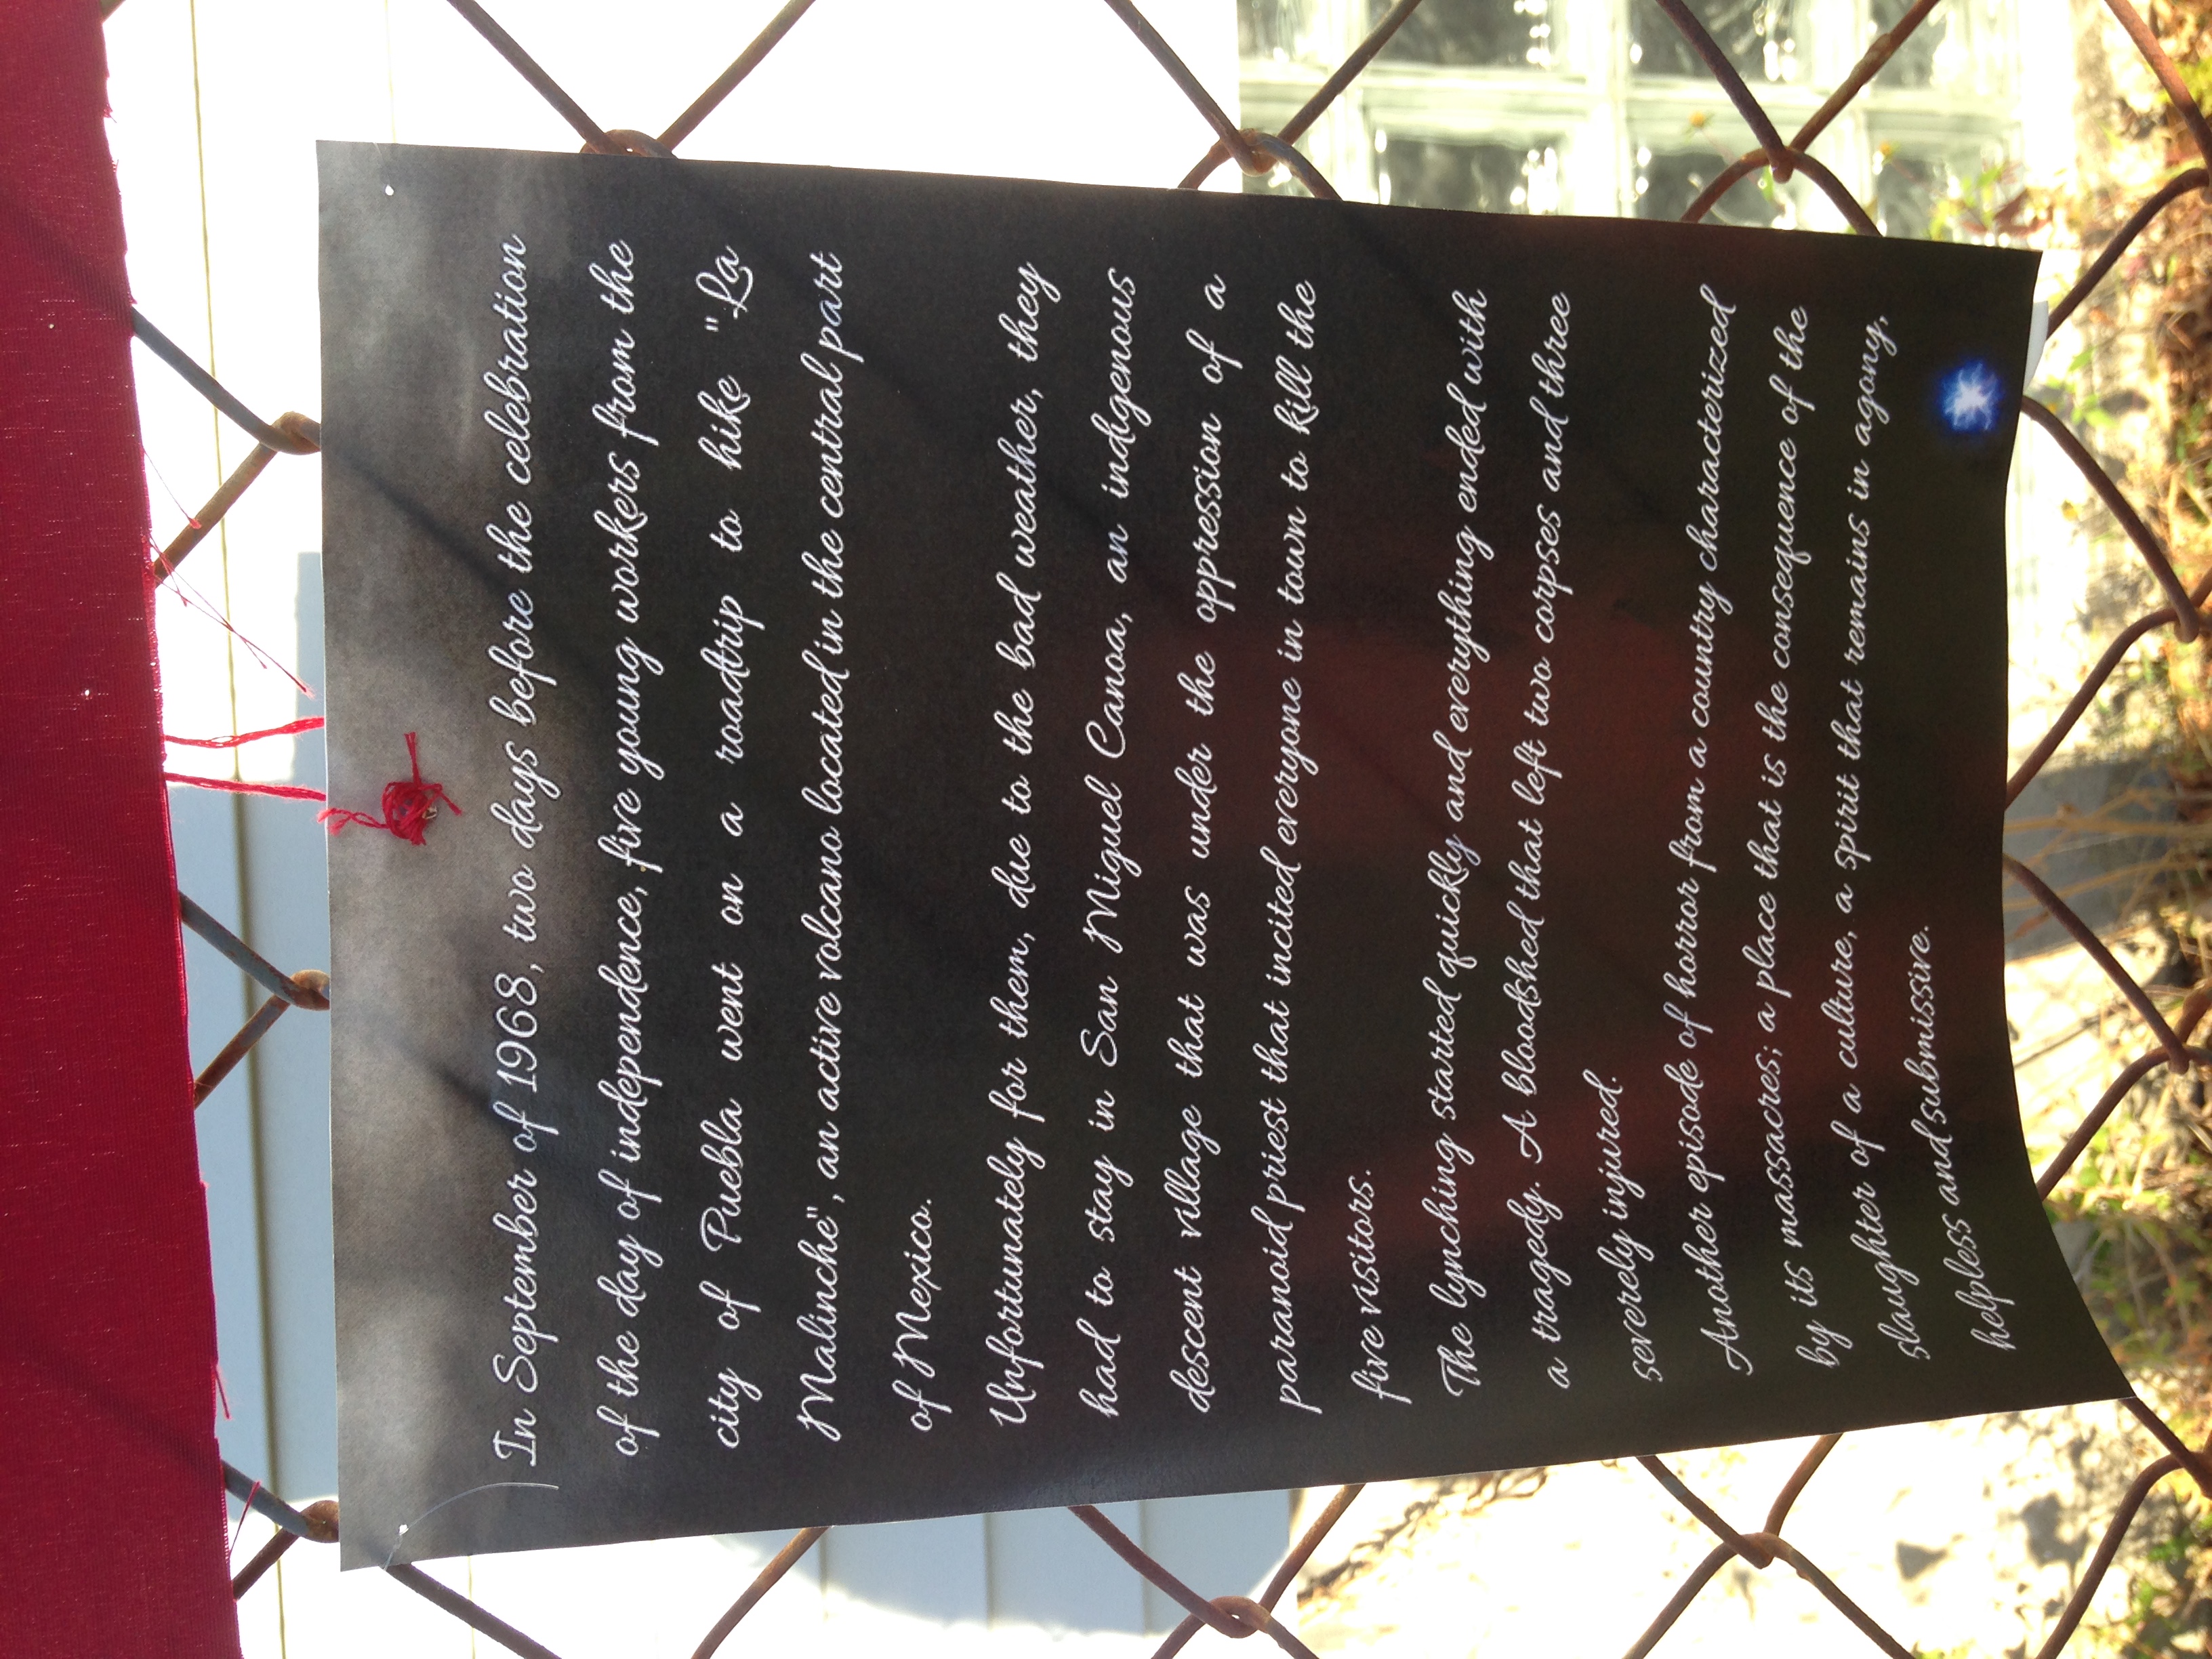 In September of 1968, two days before the celebration
of the day of independence, five young workers from the
city of Puebla went on a roadtrip to hike "La
Malinche", an active volcano located in the central part
of Mexico.
Unfortunately for them, due to the bad weather, they
had to stay in San Miguel Canoa, an indigenous
descent village that was under the oppression of a
paranoid priest that incited everyone in town to kill the
five visitors.
The lynching started quickly and everything ended with
a tragedy. A bloodshed that left two corpses and three
severely injured.
Another episode of horror from a country characterized
by its massacres; a place that is the consequence of the
slaughter of a culture, a spirit that remains in agony,
helpless and submissive.